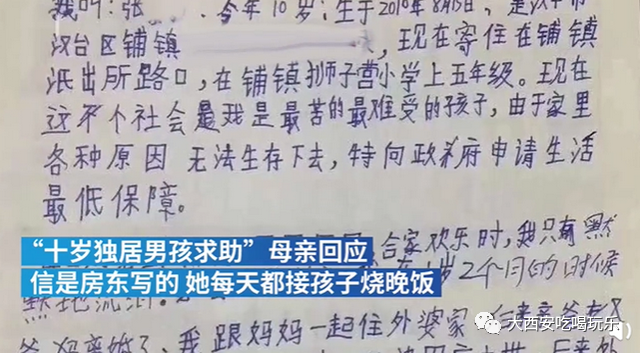 我叫:张 今年10岁,生于2010年8月15,是汉中市
汉台区铺镇 现在寄住在铺镇
派出所路口,在铺镇狮子营小学上五年级。现在
这个社会是我是最苦的最难受的孩子,由于家里
各种原因 无法生存下去,特向政府申请生活
最低保障。
合家欢乐时,我只有默
“十岁独居男孩求助”母亲回应
岁2个月的时候
信是房东写的 她每天都接孩子烧晚饭
默地流泪。
爸妈离婚了,我跟妈妈一起住外婆家
大西安吃喝玩乐